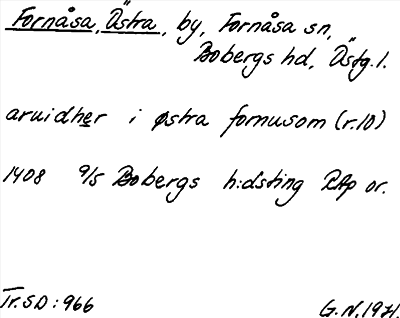 Fornåsa, Östra, by, Fornåsa sn,
Bobergs hd, Östg. l.
aruidher i østra fornusom (r.10)
1408 9/5 Bobergs h:dsting RAp or.
Tr. SD: 966
G. N. 1971.